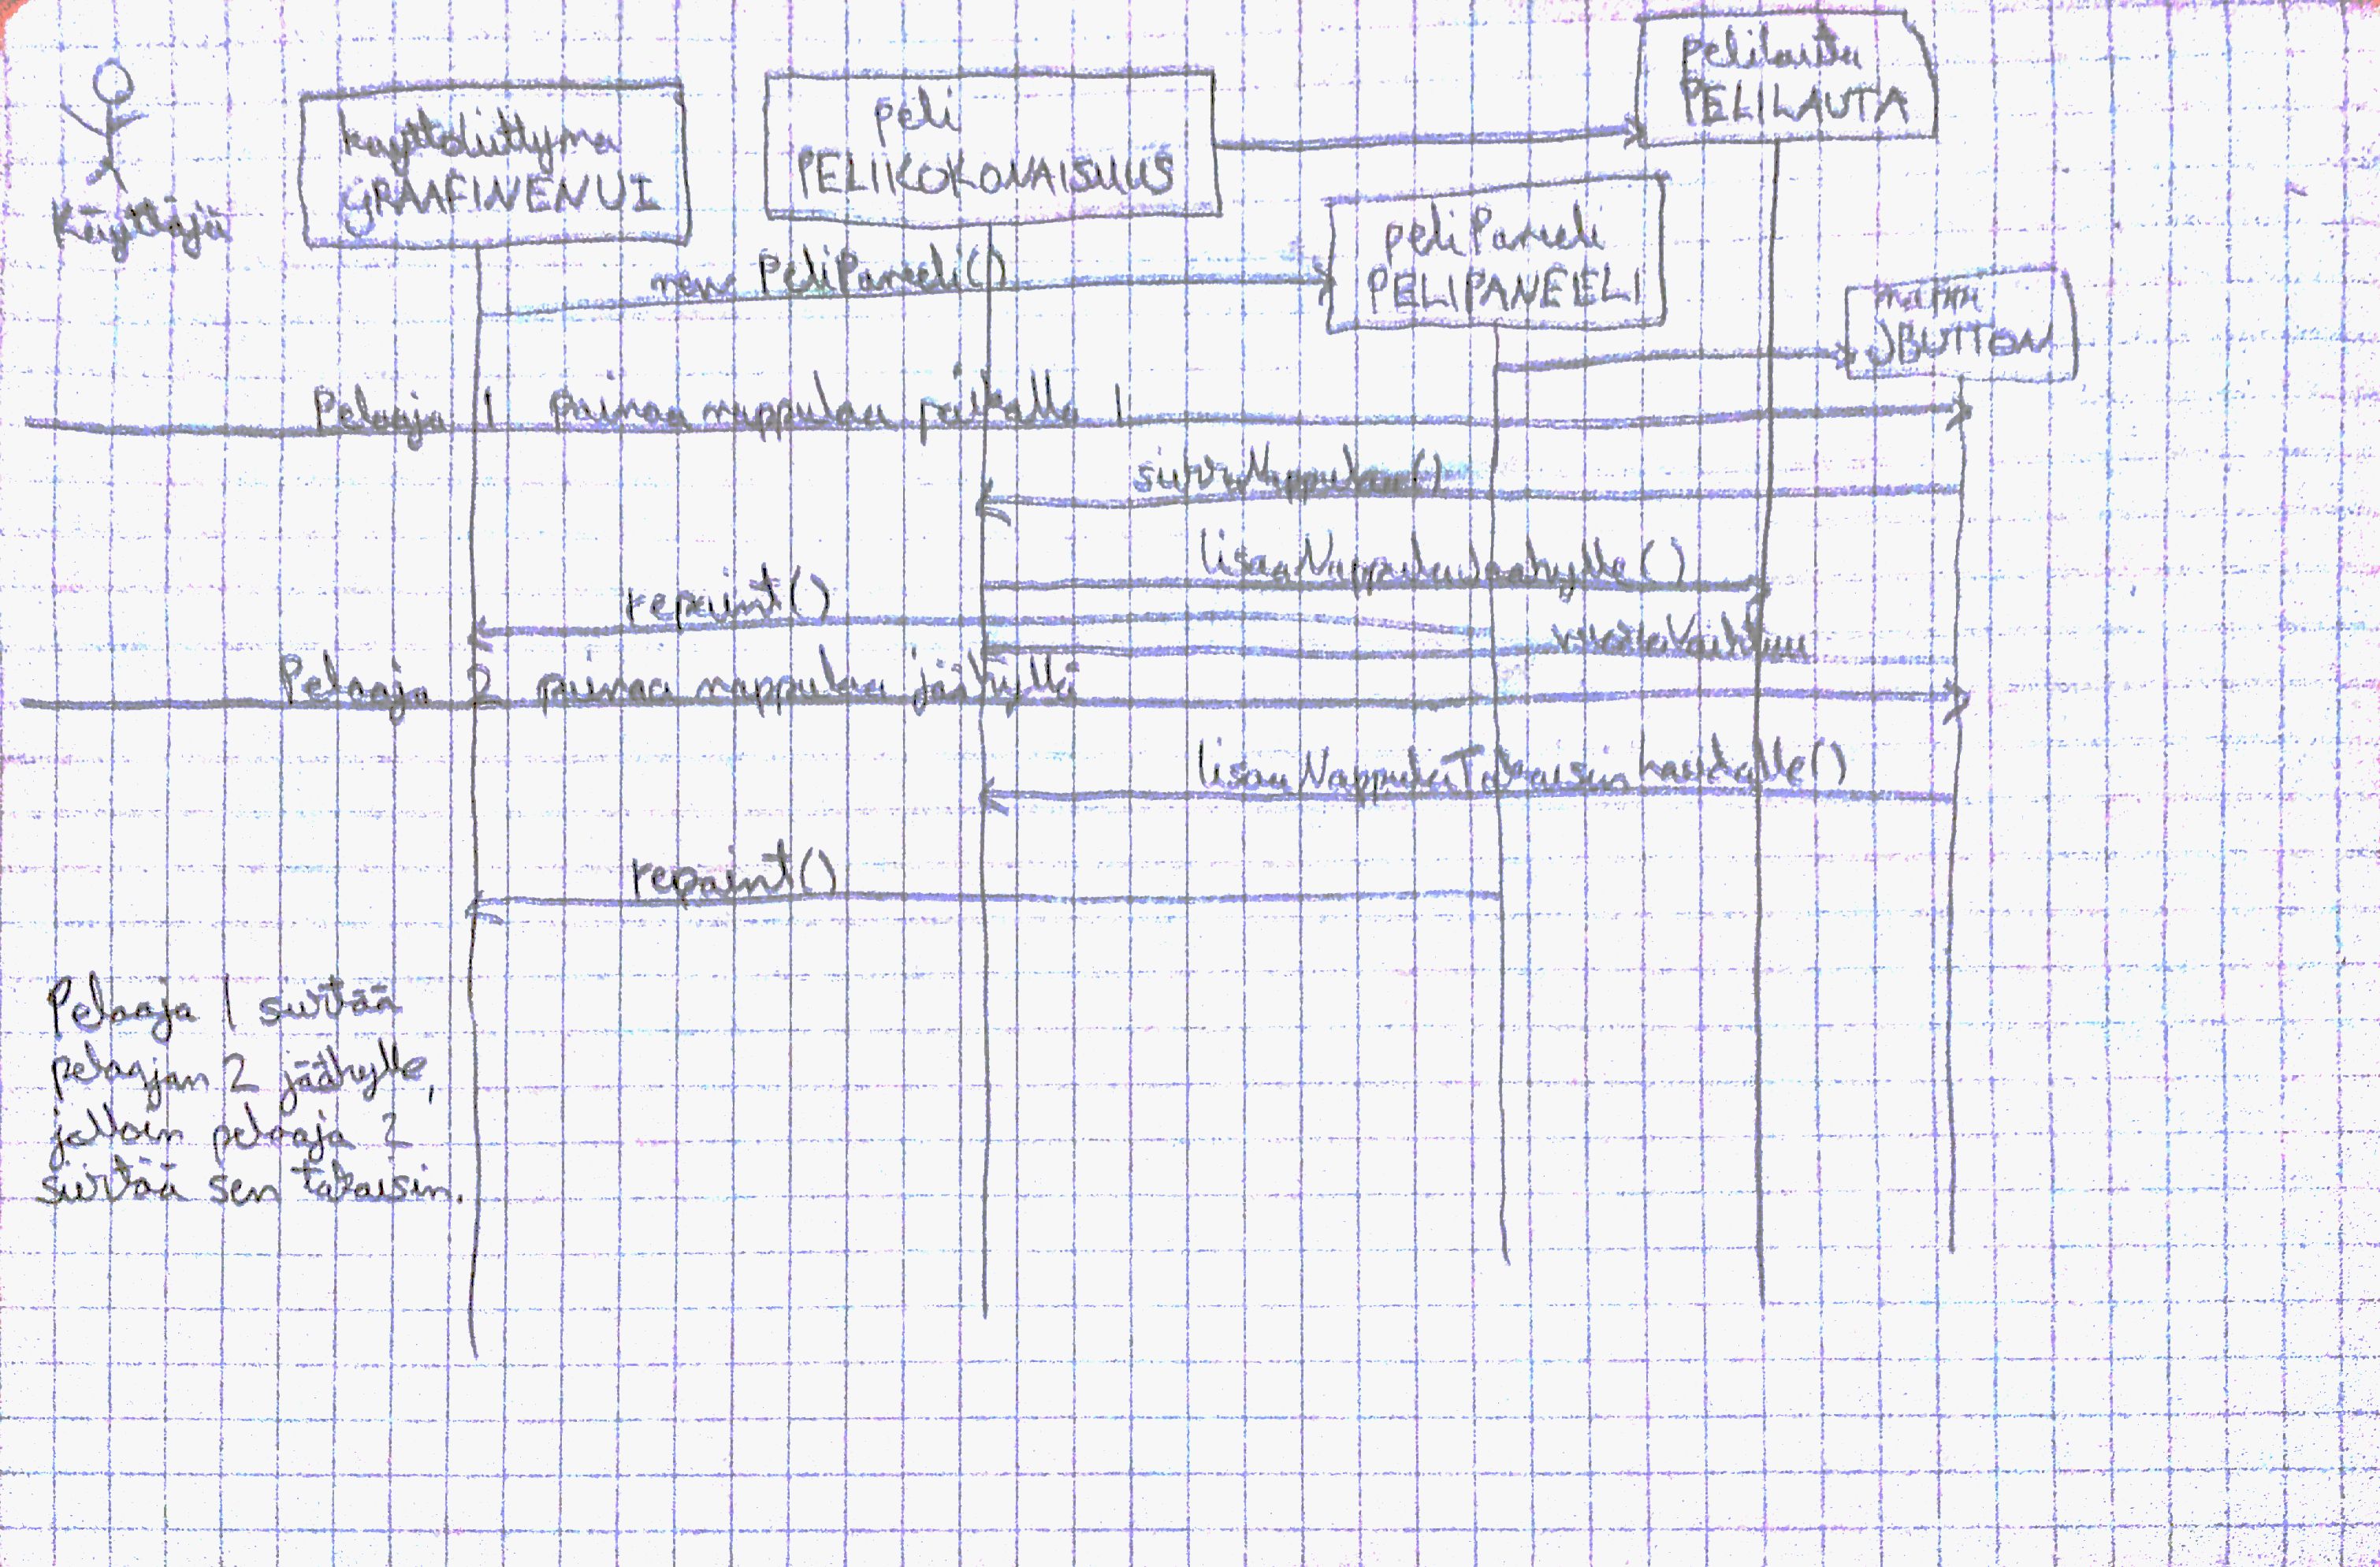 Käyttäjä
kayttoliittyma
GRAAFINENUI
peli
PELIKOKONAISUUS
pelilauta
PELILAUTA
peliPaneeli
PELIPANEELI
JBUTTON
new PeliPaneeli()
Pelaaja 1 painaa nappulaa paikalla 1
siirraNappulaa()
lisaaNappulaJaahylle()
repaint()
Pelaaja 2 painaa nappulaa jäähyllä
lisaaNappulaTakaisinLaudalle()
repaint()
Pelaaja 1 siirtää
pelaajan 2 jäähylle,
jolloin pelaaja 2
siirtää sen takaisin.